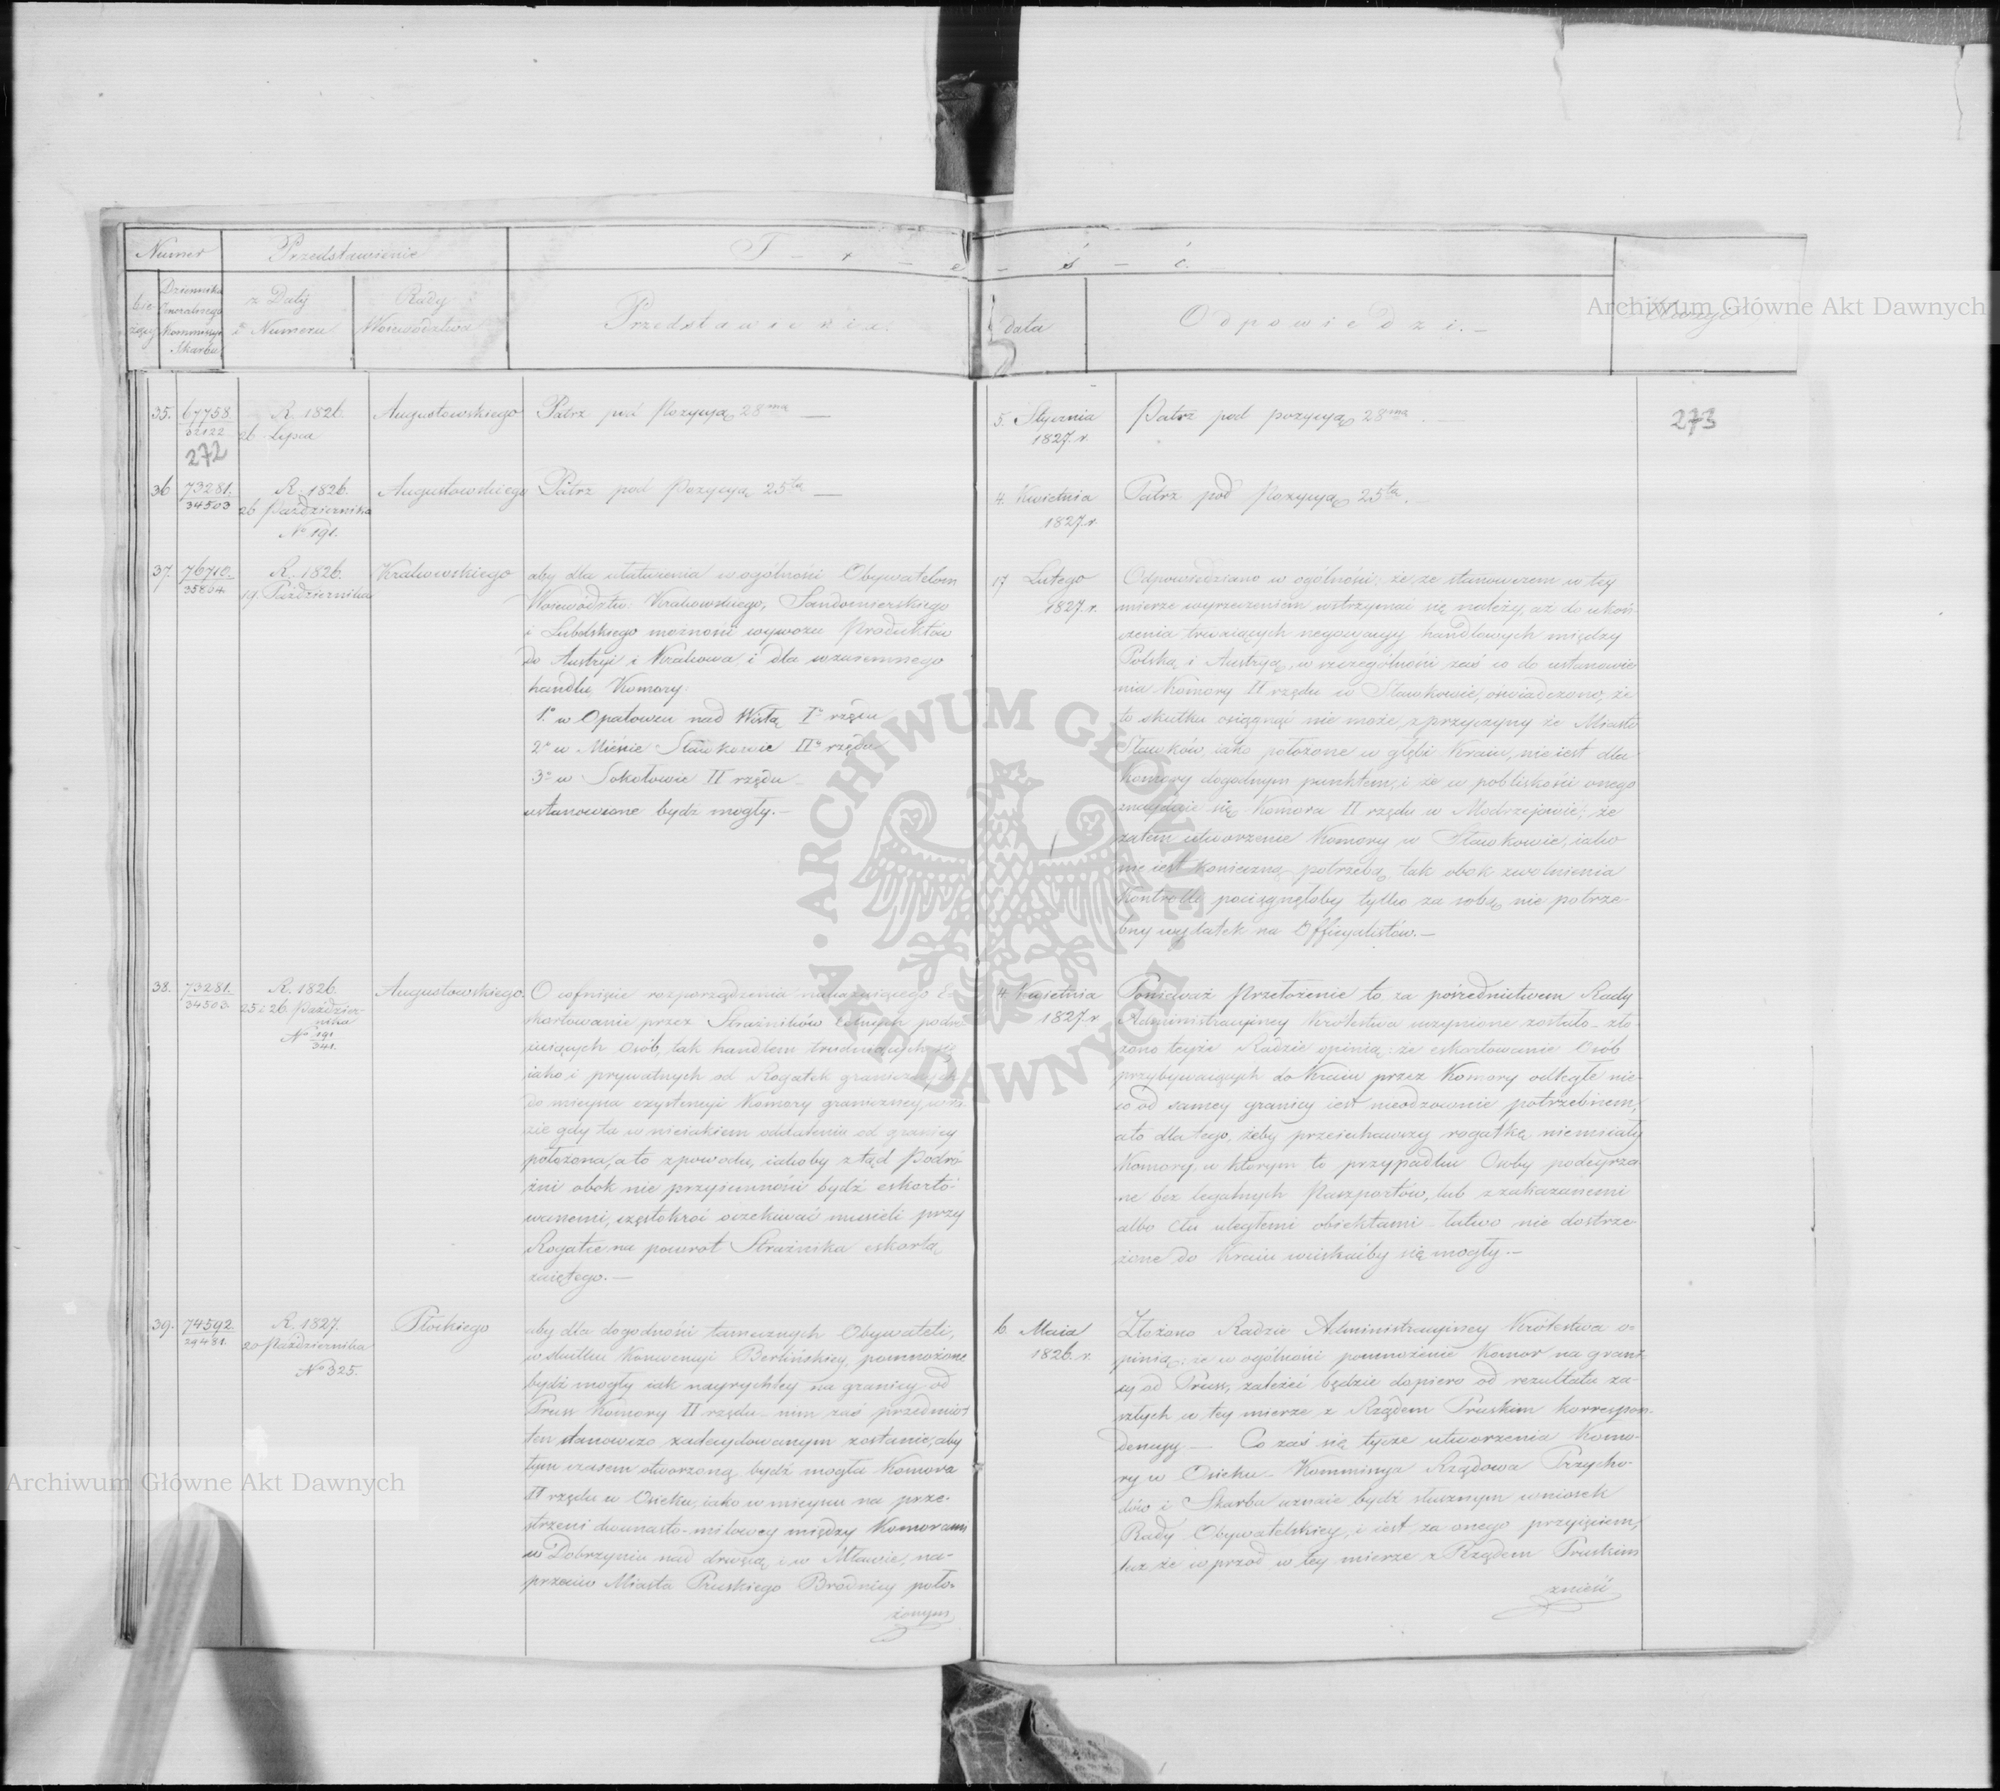 Numer
Przedstawienie
T - r - e - ś - ć.
bie-
żący
Dziennika
Generalnego
Kommissyi
Skarbu
z Daty
i Numeru
Rady
Województwa
Przedstawienia.
data
Odpowiedzi. -
Uwagi
35.
67758
32122
272
R. 1826
26 Lipca
Augustowskiego
Patrz pod Pozycyą 28ma —
5. Stycznia
1827. r.
Patrz pod pozycyą 28ma. —
273
36
73281.
34503
R. 1826.
26 Października
No 191.
Augustowskiego
Patrz pod Pozycyą 25tą —
4. Kwietnia
1827. r.
Patrz pod Pozycyą 25tą.
37.
76710.
35804.
R. 1826.
19. Października
Krakowskiego
aby dla ułatwienia w ogólności Obywatelom
Województw: Krakowskiego, Sandomierskiego
i Lubelskiego możności wywozu Produktów
do Austryi i Krakowa, i dla wzaiemnego
handlu, Komory:
1o. w Opatowcu nad Wisłą Io rzędu
2o w Mieście Sławkowie IIo rzędu
3o w Sokołowie II rzędu
ustanowione bydź mogły. —
17 Lutego
1827. r.
Odpowiedziano w ogólności: że ze stanowczem w tey
mierze wyrzeczeniem wstrzymać się należy, aż do ukoń-
czenia trwaiących negocyacyj handlowych między
Polską i Austryą, w szczególności zaś co do ustanowie
nia Komory II rzędu w Sławkowie, oświadczono, że
to skutku osiągnąć nie może z przyczyny że Miasto
Sławków, iako położone w głębi Kraiu, nie iest dla
Komory dogodnym punktem, i że w pobliskości onego
znayduie się Komora II rzędu w Modrzejowie; że
zatem utworzenie Komory w Sławkowie, iako
nie iest konieczną potrzebą, tak obok zwolnienia
Kontrolli pociągnęłoby tylko za sobą nie potrze-
bny wydatek na Officyalistów. —
38.
73281.
34503
R. 1826.
25 i 26 Paździer-
nika
No 191
341.
Augustowskiego.
O cofnięcie rozporządzenia nakazuiącego E-
skortowanie przez Strażników celnych podró-
żuiących Osób, tak handlem trudniących się
iako i prywatnych od Rogatek granicznych
do mieysca exystencyi Komory graniczney, w ra-
zie gdy ta w nieiakiem oddaleniu od granicy
położona, a to z powodu, iakoby ztąd Podró-
żni obok nie przyiemności bydź eskorto-
wanemi, częstokroć oczekiwać musieli przy
Rogatce na powrót Strażnika eskortą
zaiętego. —
4 Kwietnia
1827. r.
Ponieważ Przełożenie to za pośrednictwem Rady
Administracyiney Królestwa uczynione zostało — zło-
żono teyże Radzie opinią: że eskortowanie Osób
przybywaiących do Kraiu przez Komory odległe nie-
co od samey granicy iest nieodzownie potrzebnem,
a to dla tego, żeby przeiechawszy rogatkę niemiały
Komory, w którym to przypadku Osoby podeyrza
ne bez legalnych Paszportów, lub z zakazanemi
albo Cłu uległemi obiektami — łatwo nie dostrze-
żone do Kraiu wciskaćby się mogły. —
39.
74592.
29481.
R. 1827.
20 Października
No 325.
Płockiego
aby dla dogodności tamecznych Obywateli,
w skutku Konwencyi Berlińskiey, pomnożone
bydź mogły iak nayrychley na granicy od
Pruss Komory II rzędu — nim zaś przedmiot
ten stanowczo zadecydowanym zostanie, aby
tym czasem otworzoną bydź mogła Komora
II rzędu w Osieku, iako w mieyscu na prze-
strzeni dwunasto-milowey między Komorami
w Dobrzyniu nad drwęcą i w Mławie, na-
przeciw Miasta Pruskiego Brodnicy poło-
żonym
6. Maia
1826. r.
Złożono Radzie Administracyiney Królestwa o-
pinią: że w ogólności pomnożenie Komor na grani-
cy od Pruss, zależeć będzie dopiero od rezultatu za-
szłych w tey mierze z Rządem Pruskim korrespon-
dencyy — Co zaś się tycze utworzenia Komo-
ry w Osieku — Kommissya Rządowa Przycho-
dów i Skarbu uznaie bydź słusznym wniosek
Rady Obywatelskiey, i iest za onego przyięciem,
tuż że wprzód w tey mierze z Rządem Pruskim
znieść
Archiwum Główne Akt Dawnych
Archiwum Główne Akt Dawnych
ARCHIWUM GŁÓWNE AKT DAWNYCH W W-WIE